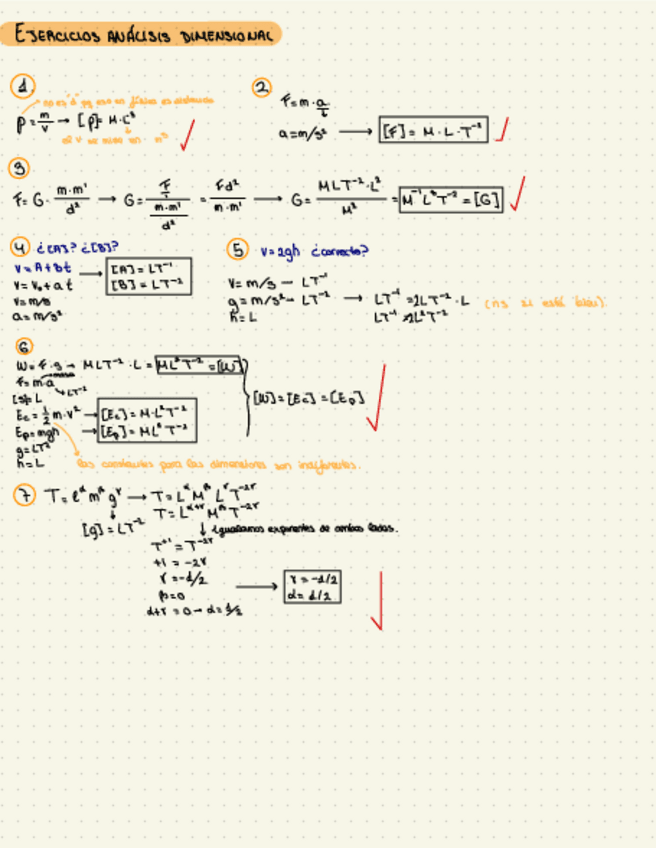 EJERCICIOS ANÁLISIS DIMENSIONAL
1
no es "d" pq eso en física es distancia
ρ = m/v → [ρ] = M·L³
2
F = m·a
a = m/s² → [F] = M·L·T⁻²
3
F = G · m·m'/d² → G = F/(m·m'/d²) = Fd²/m·m' → G = MLT⁻²·L²/M² = M⁻¹L³T⁻² = [G]
4 ¿[A]? ¿[B]?
v = A + Bt
v = v₀ + at
v = m/s
a = m/s²
[A] = LT⁻¹
[B] = LT⁻²
5 v = 2gh ¿correcta?
v = m/s − LT⁻¹
g = m/s² − LT⁻² → LT⁻¹ = 2LT⁻²·L
h = L
LT⁻¹ = 2L²T⁻²
(ns si está bien).
6
W = F·s → MLT⁻²·L = ML²T⁻² = [W]
F = m·a
LT⁻²
[s] = L
Ec = 1/2 m·v² → [Ec] = M·L²T⁻²
Ep = mgh → [Ep] = ML²T⁻²
g = LT⁻²
h = L
[W] = [Ec] = [Ep]
las constantes para las dimensiones son indiferentes.
7 T = l^α m^β g^γ → T = L^α M^β L^γ T^-2γ
T = L^α+γ M^β T^-2γ
[g] = LT⁻²
Igualamos exponentes de ambos lados.
T⁺¹ = T^-2γ
+1 = -2γ
γ = -1/2
β = 0
α+γ = 0 → α = 1/2
γ = -1/2
α = 1/2